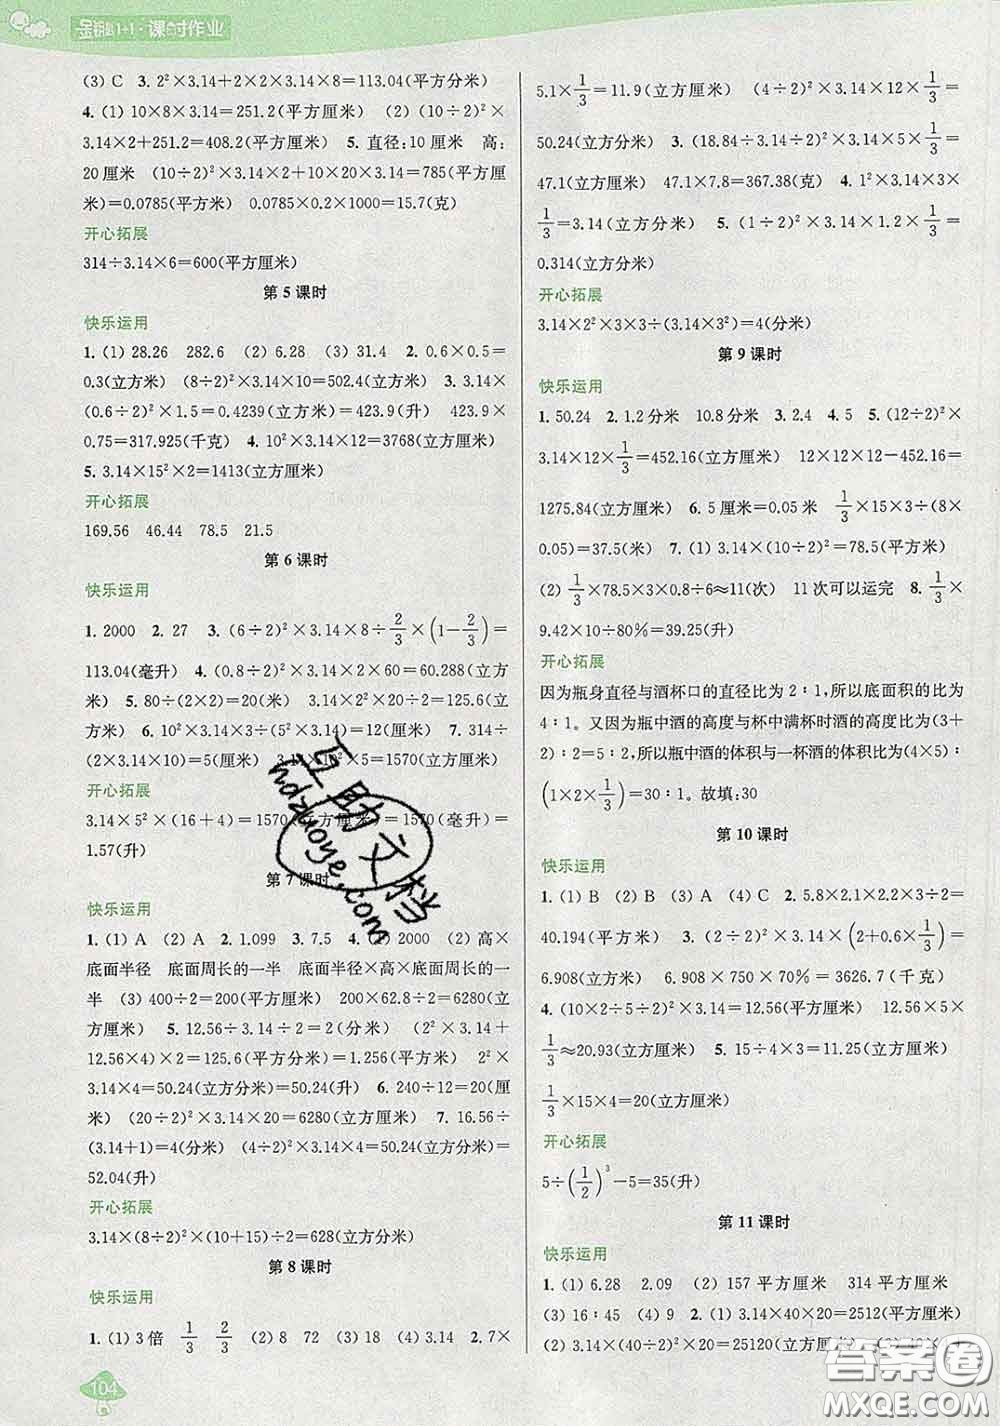 金钥匙1+1·课时作业
(3) C 3. 2²×3.14+2×2×3.14×8=113.04(平方分米)
4. (1) 10×8×3.14=251.2(平方厘米) (2) (10÷2)²×
3.14×2+251.2=408.2(平方厘米) 5. 直径:10厘米 高:
20厘米 (10÷2)²×3.14×1+10×20×3.14=785(平方厘
米)=0.0785(平方米) 0.0785×0.2×1000=15.7(克)
开心拓展
314÷3.14×6=600(平方厘米)
第5课时
快乐运用
1. (1) 28.26 282.6 (2) 6.28 (3) 31.4 2. 0.6×0.5=
0.3(立方米) (8÷2)²×3.14×10=502.4(立方米) 3. 3.14×
(0.6÷2)²×1.5=0.4239(立方米)=423.9(升) 423.9×
0.75=317.925(千克) 4. 10²×3.14×12=3768(立方厘米)
5. 3.14×15²×2=1413(立方厘米)
开心拓展
169.56 46.44 78.5 21.5
第6课时
快乐运用
1. 2000 2. 27 3. (6÷2)²×3.14×8÷2/3×(1−2/3)=
113.04(毫升) 4. (0.8÷2)²×3.14×2×60=60.288(立方
米) 5. 80÷(2×2)=20(米) 3.14×2²×20÷2=125.6(立
方米) 6. 10²×3.14×3÷(5²×3.14)=12(厘米) 7. 314÷
(2×3.14×10)=5(厘米) 3.14×10²×5=1570(立方厘米)
开心拓展
3.14×5²×(16+4)=1570(立方厘米)=1570(毫升)=
1.57(升)
第7课时
快乐运用
1. (1) A (2) A 2. 1.099 3. 7.5 4. (1) 2000 (2) 高×
底面半径 底面周长的一半 底面半径×高×底面周长的一
半 (3) 400÷2=200(平方厘米) 200×62.8÷2=6280(立
方厘米) 5. 12.56÷3.14÷2=2(分米) (2²×3.14+
12.56×4)×2=125.6(平方分米)=1.256(平方米) 2²×
3.14×4=50.24(立方分米)=50.24(升) 6. 240÷12=20(厘
米) (20÷2)²×3.14×20=6280(立方厘米) 7. 16.56÷
(3.14+1)=4(分米) (4÷2)²×3.14×4=50.24(立方分米)=
52.04(升)
开心拓展
3.14×(8÷2)²×(10+15)÷2=628(立方分米)
第8课时
快乐运用
1. (1) 3倍 1/3 2/3 (2) 8 72 (3) 18 (4) 3.14 2. 7×
104
5.1×1/3=11.9(立方厘米) (4÷2)²×3.14×12×1/3=
50.24(立方分米) 3. (18.84÷3.14÷2)²×3.14×5×1/3=
47.1(立方厘米) 47.1×7.8=367.38(克) 4. 1²×3.14×3×
1/3=3.14(立方分米) 5. (1÷2)²×3.14×1.2×1/3=
0.314(立方分米)
开心拓展
3.14×2²×3×3÷(3.14×3²)=4(分米)
第9课时
快乐运用
1. 50.24 2. 1.2分米 10.8分米 3. 2.4 4. 5 5. (12÷2)²×
3.14×12×1/3=452.16(立方厘米) 12×12×12−452.16=
1275.84(立方厘米) 6. 5厘米=0.05米 1/3×15×3÷(8×
0.05)=37.5(米) 7. (1) 3.14×(10÷2)²=78.5(平方米)
(2) 1/3×78.5×3×0.8÷6≈11(次) 11次可以运完 8. 1/3×
9.42×10÷80%=39.25(升)
开心拓展
因为瓶身直径与酒杯口的直径比为2∶1,所以底面积的比为
4∶1。又因为瓶中酒的高度与杯中满杯时酒的高度比为(3+
2)∶2=5∶2,所以瓶中酒的体积与一杯酒的体积比为(4×5)∶
(1×2×1/3)=30∶1。故填:30
第10课时
快乐运用
1. (1) B (2) B (3) A (4) C 2. 5.8×2.1×2.2×3÷2=
40.194(平方米) 3. (2÷2)²×3.14×(2+0.6×1/3)=
6.908(立方米) 6.908×750×70%=3626.7(千克)
4. (10÷2÷5÷2)²×3.14=12.56(平方米) 12.56×5×
1/3≈20.93(立方厘米) 5. 15÷4×3=11.25(立方厘米)
1/3×15×4=20(立方厘米)
开心拓展
5÷(1/2)³−5=35(升)
第11课时
快乐运用
1. (1) 6.28 2.09 (2) 157平方厘米 314平方厘米
(3) 16∶45 (4) 9 2. (1) 3.14×40×20=2512(平方厘米)
(2) 3.14×(40÷2)²×20=25120(立方厘米)
互助文档
hdzuoye.com
答案圈
MXQE.COM